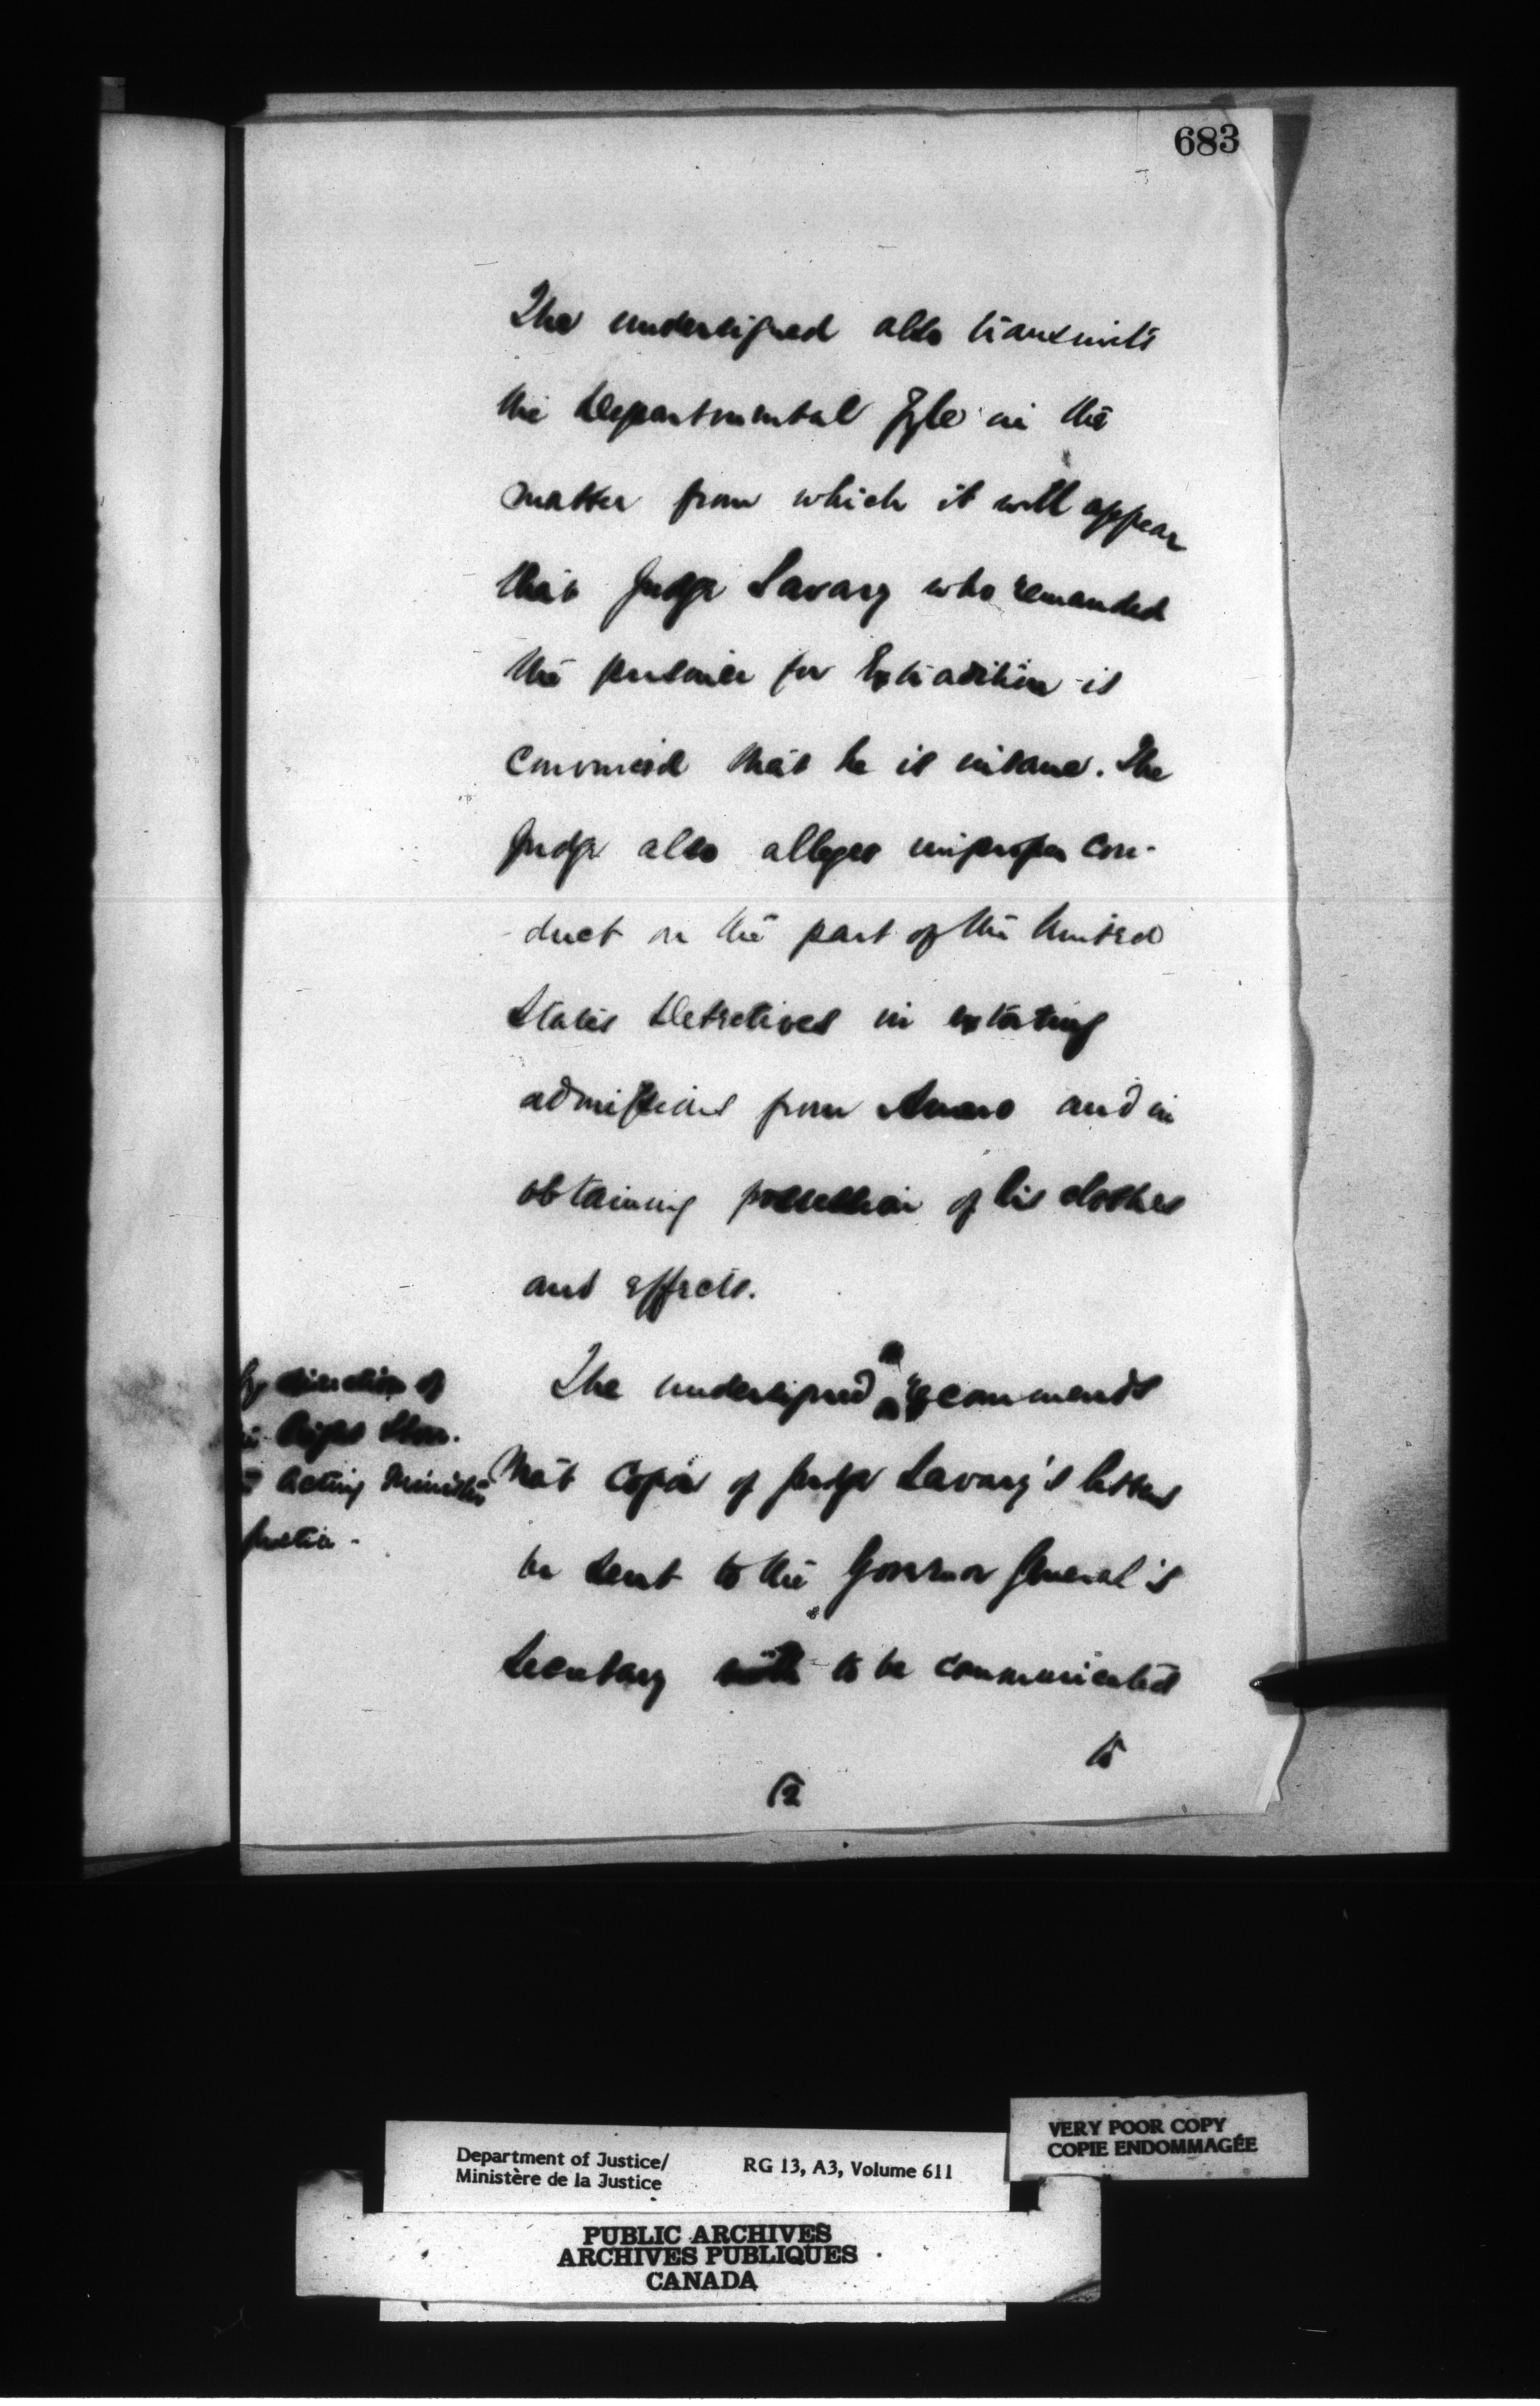 683
The undersigned also transmits
the Departmental Fyle in the
matter from which it will appear
that Judge Savary who remanded
the prisoner for Extradition is
convinced that he is insane. The
Judge also alleges improper con-
duct on the part of the United
States Detectives in extorting
admissions from and in
obtaining possession of his clothes
and effects.
The undersigned recommends
that copies of Judge Savary's letters
be sent to the Governor General's
Secretary to be communicated
to
direction of
Right Hon.
Acting Minister
Justice.
12
VERY POOR COPY
COPIE ENDOMMAGÉE
Department of Justice/ RG 13, A3, Volume 611
Ministère de la Justice
PUBLIC ARCHIVES
ARCHIVES PUBLIQUES
CANADA